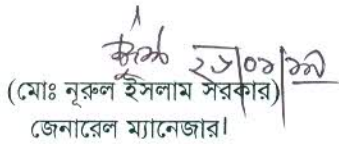 ২৮|০৯|২৯
(মোঃ নূরুল ইসলাম সরকার)
জেনারেল ম্যানেজার।